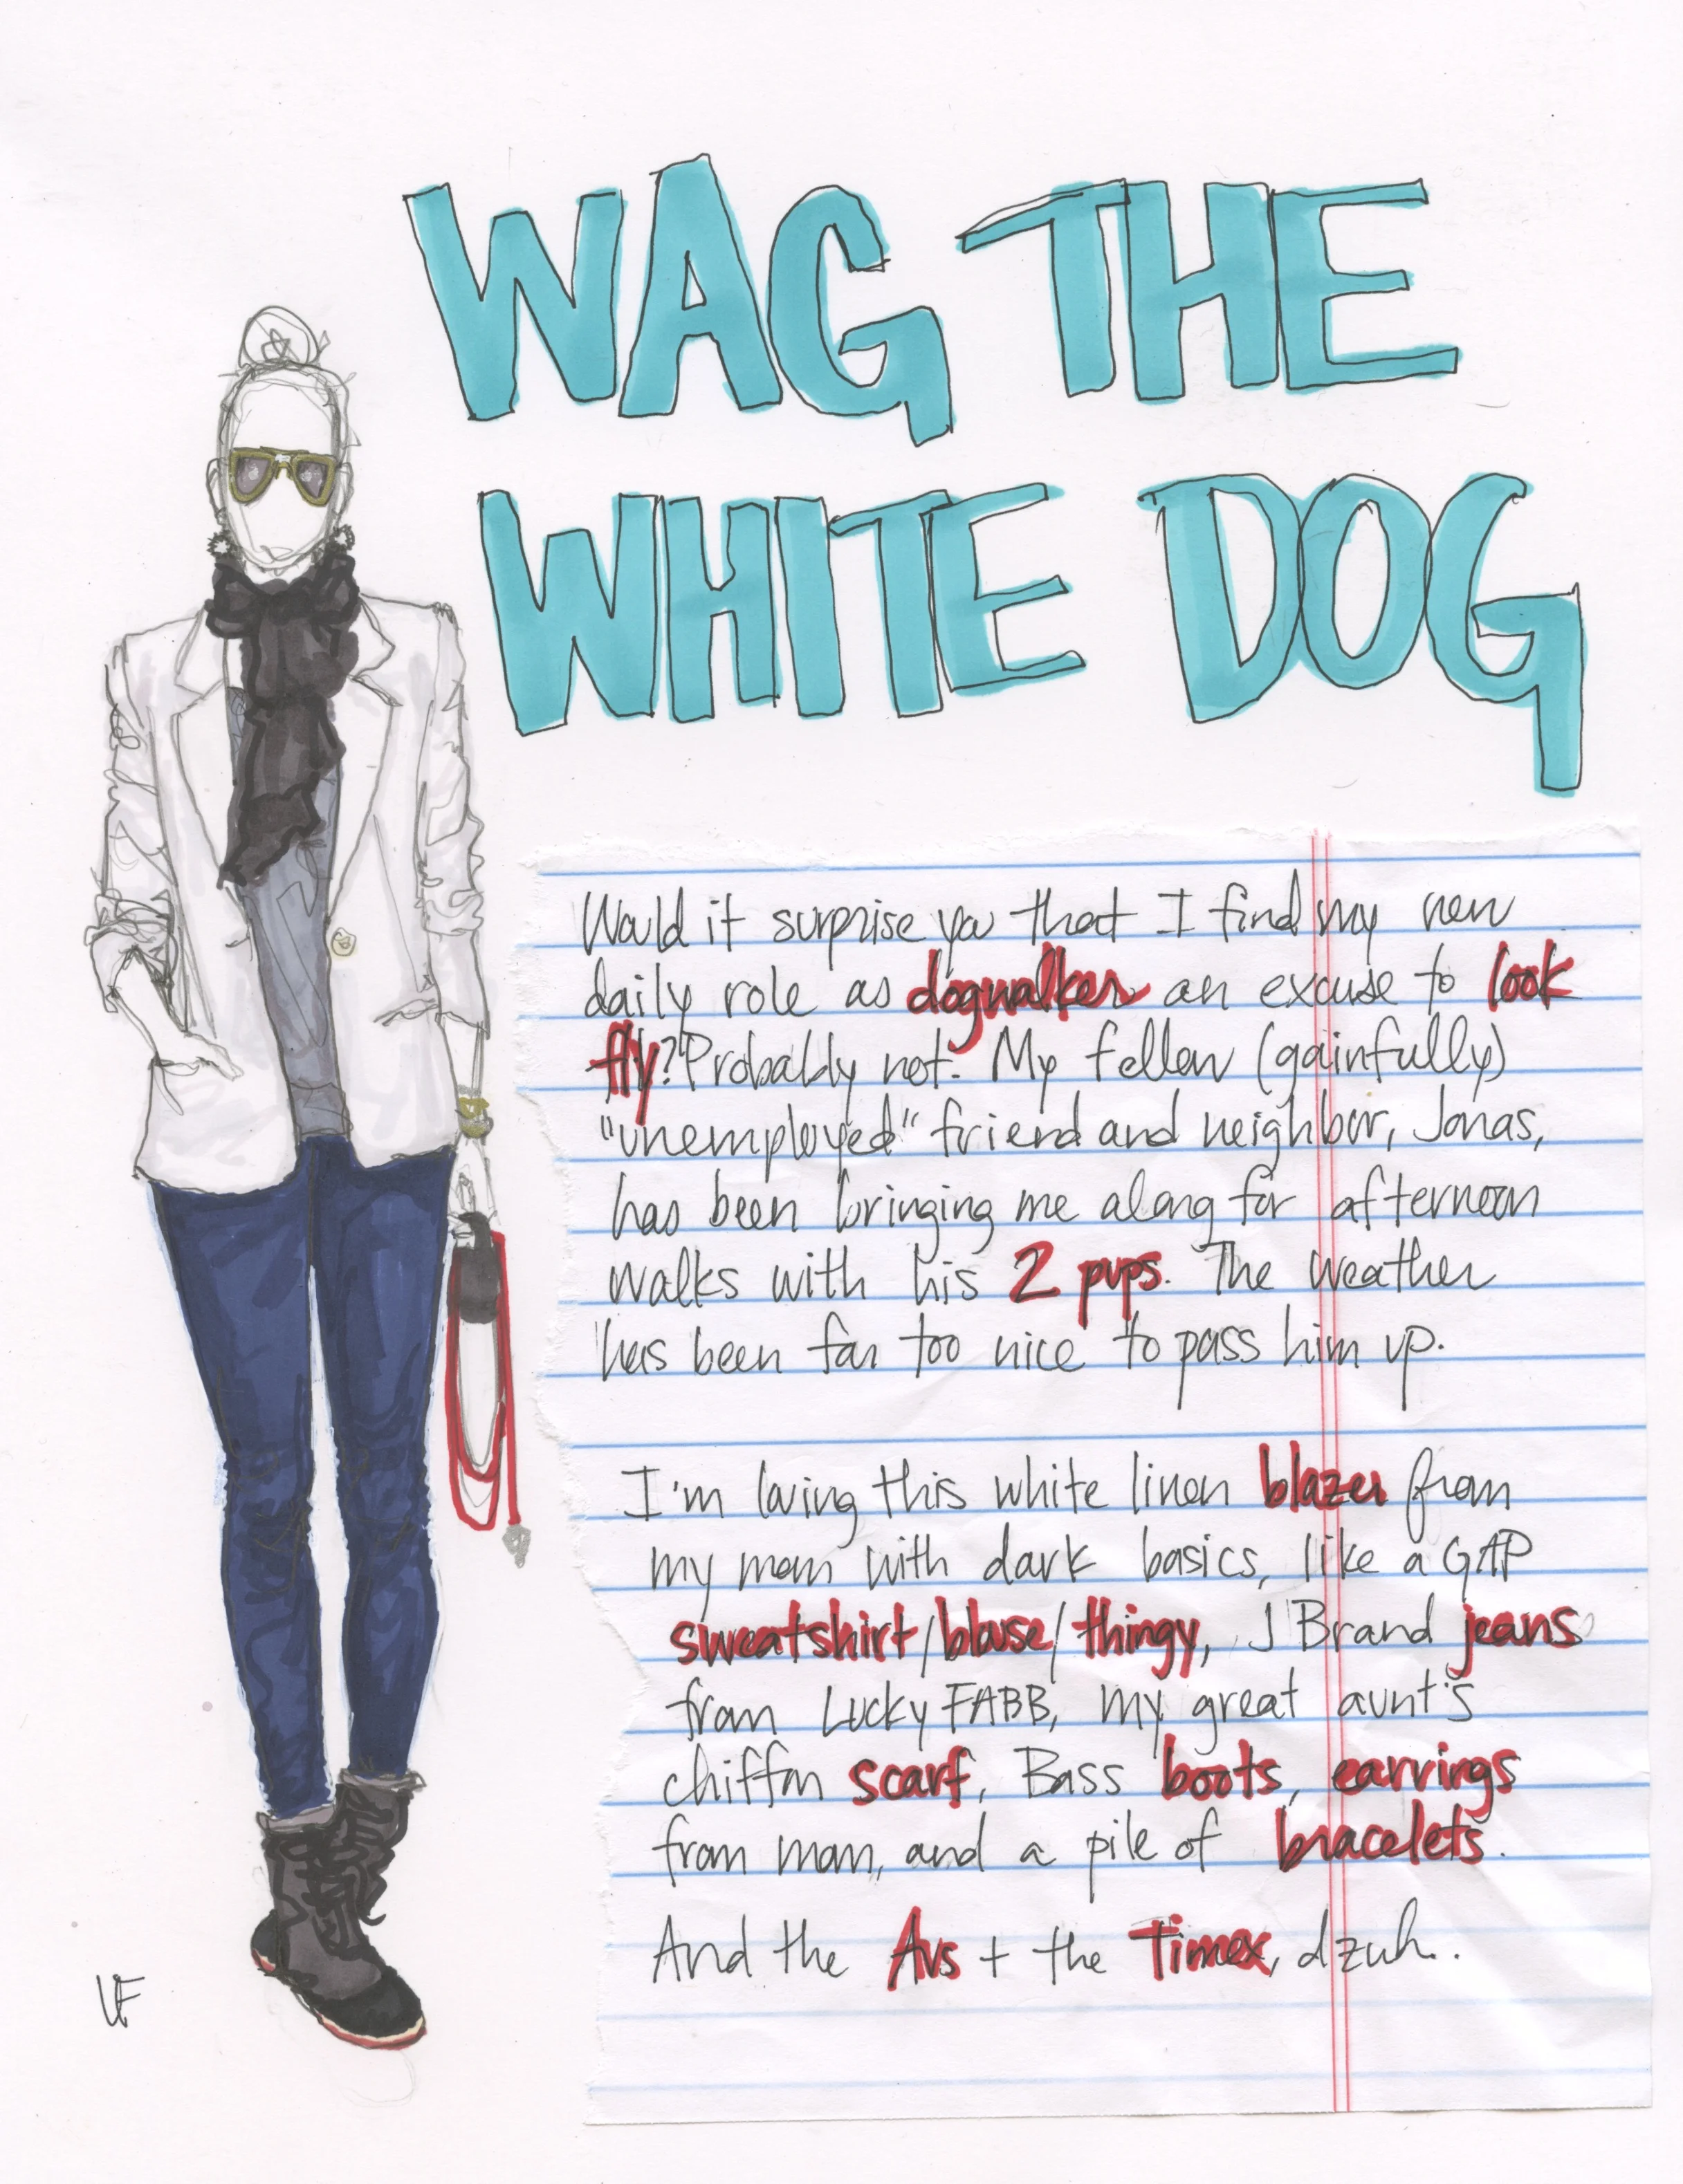 WAG THE
WHITE DOG
Would it surprise you that I find my new
daily role as dogwalker an excuse to look
fly? Probably not. My fellow (gainfully)
"unemployed" friend and neighbor, Jonas,
has been bringing me along for afternoon
walks with his 2 pups. The weather
has been far too nice to pass him up.
I'm loving this white linen blazer from
my mom with dark basics, like a GAP
sweatshirt/blouse/thingy, J Brand jeans
from Lucky FABB, my great aunt's
chiffon scarf, Bass boots, earrings
from mom, and a pile of bracelets.
And the Avs + the Timex, dzuh.
LF